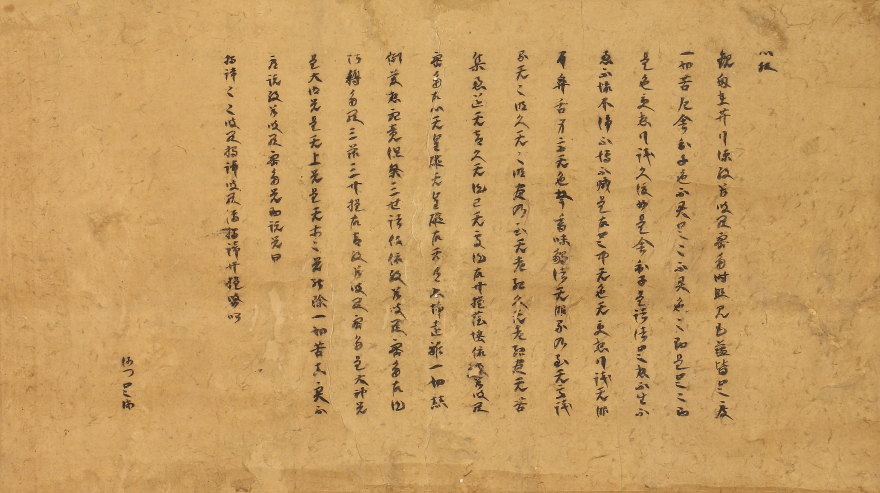 心経
観自在菩薩行深般若波羅蜜多時照見五蘊皆空度
一切苦厄舎利子色不異空々不異色々即是空々即
是色受想行識亦復如是舎利子是諸法空相不生不
滅不垢不浄不増不減是故空中无色无受想行識无眼
耳鼻舌身意无色声香味触法无眼界乃至无意識
界无々明亦无々明尽乃至无老死亦无老死尽无苦
集滅道无智亦无得以无所得故菩提薩埵依般若波羅
蜜多故心无罣礙无罣礙故无有恐怖遠離一切顛
倒夢想究竟涅槃三世諸仏依般若波羅蜜多故得
阿耨多羅三藐三菩提故知般若波羅蜜多是大神咒
是大明咒是无上咒是无等々咒能除一切苦真実不
虚説故般若波羅蜜多咒即説咒曰
掲諦々々波羅掲諦波羅僧掲諦菩提莎呵